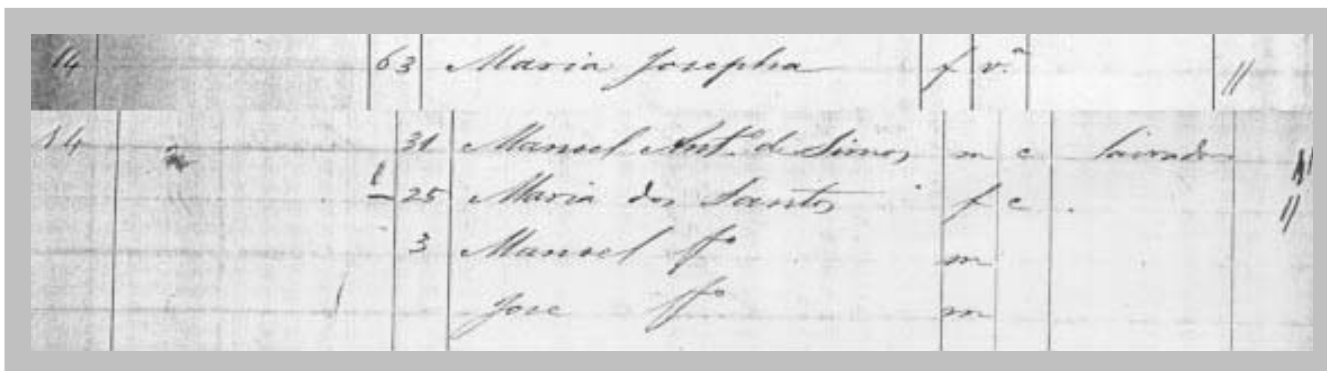 14 63 Maria Josepha f v.ª //
14 31 Manoel Ant.º de m c Lavrador //
25 Maria dos Santos f c //
3 Manoel f.º m
Jose f.º m